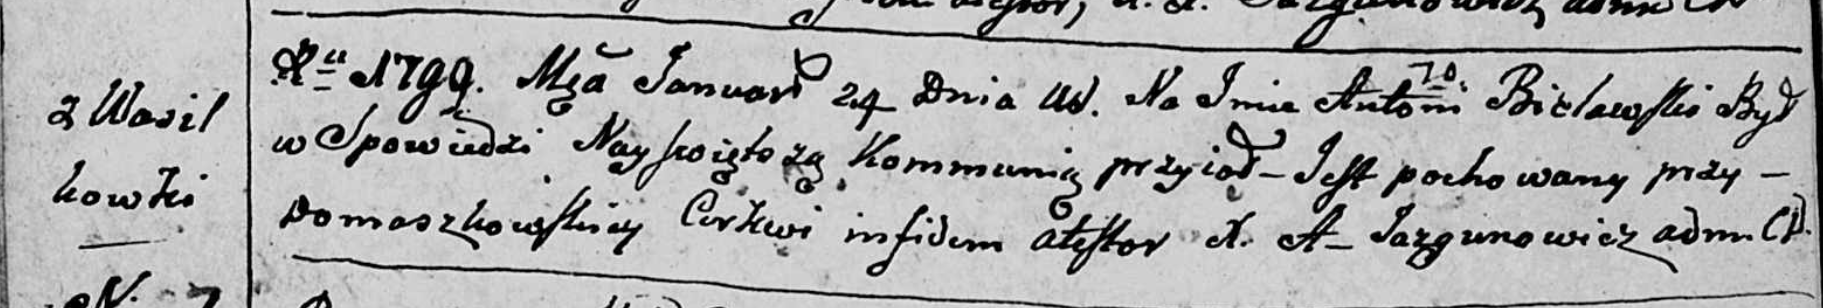 z Wasil
kowki
Rͧ 1799. Mça Januarÿ 24 Dnia Um. Na Imie Antoni 70. Bielawski Był
w Spowiedzi Nayswiętszą Kommunią przyioł - Jest pochowany przy -
Domaszkowskiey Cerkwi in fidem atestor X. A- Jazgunowicz adm. CD.